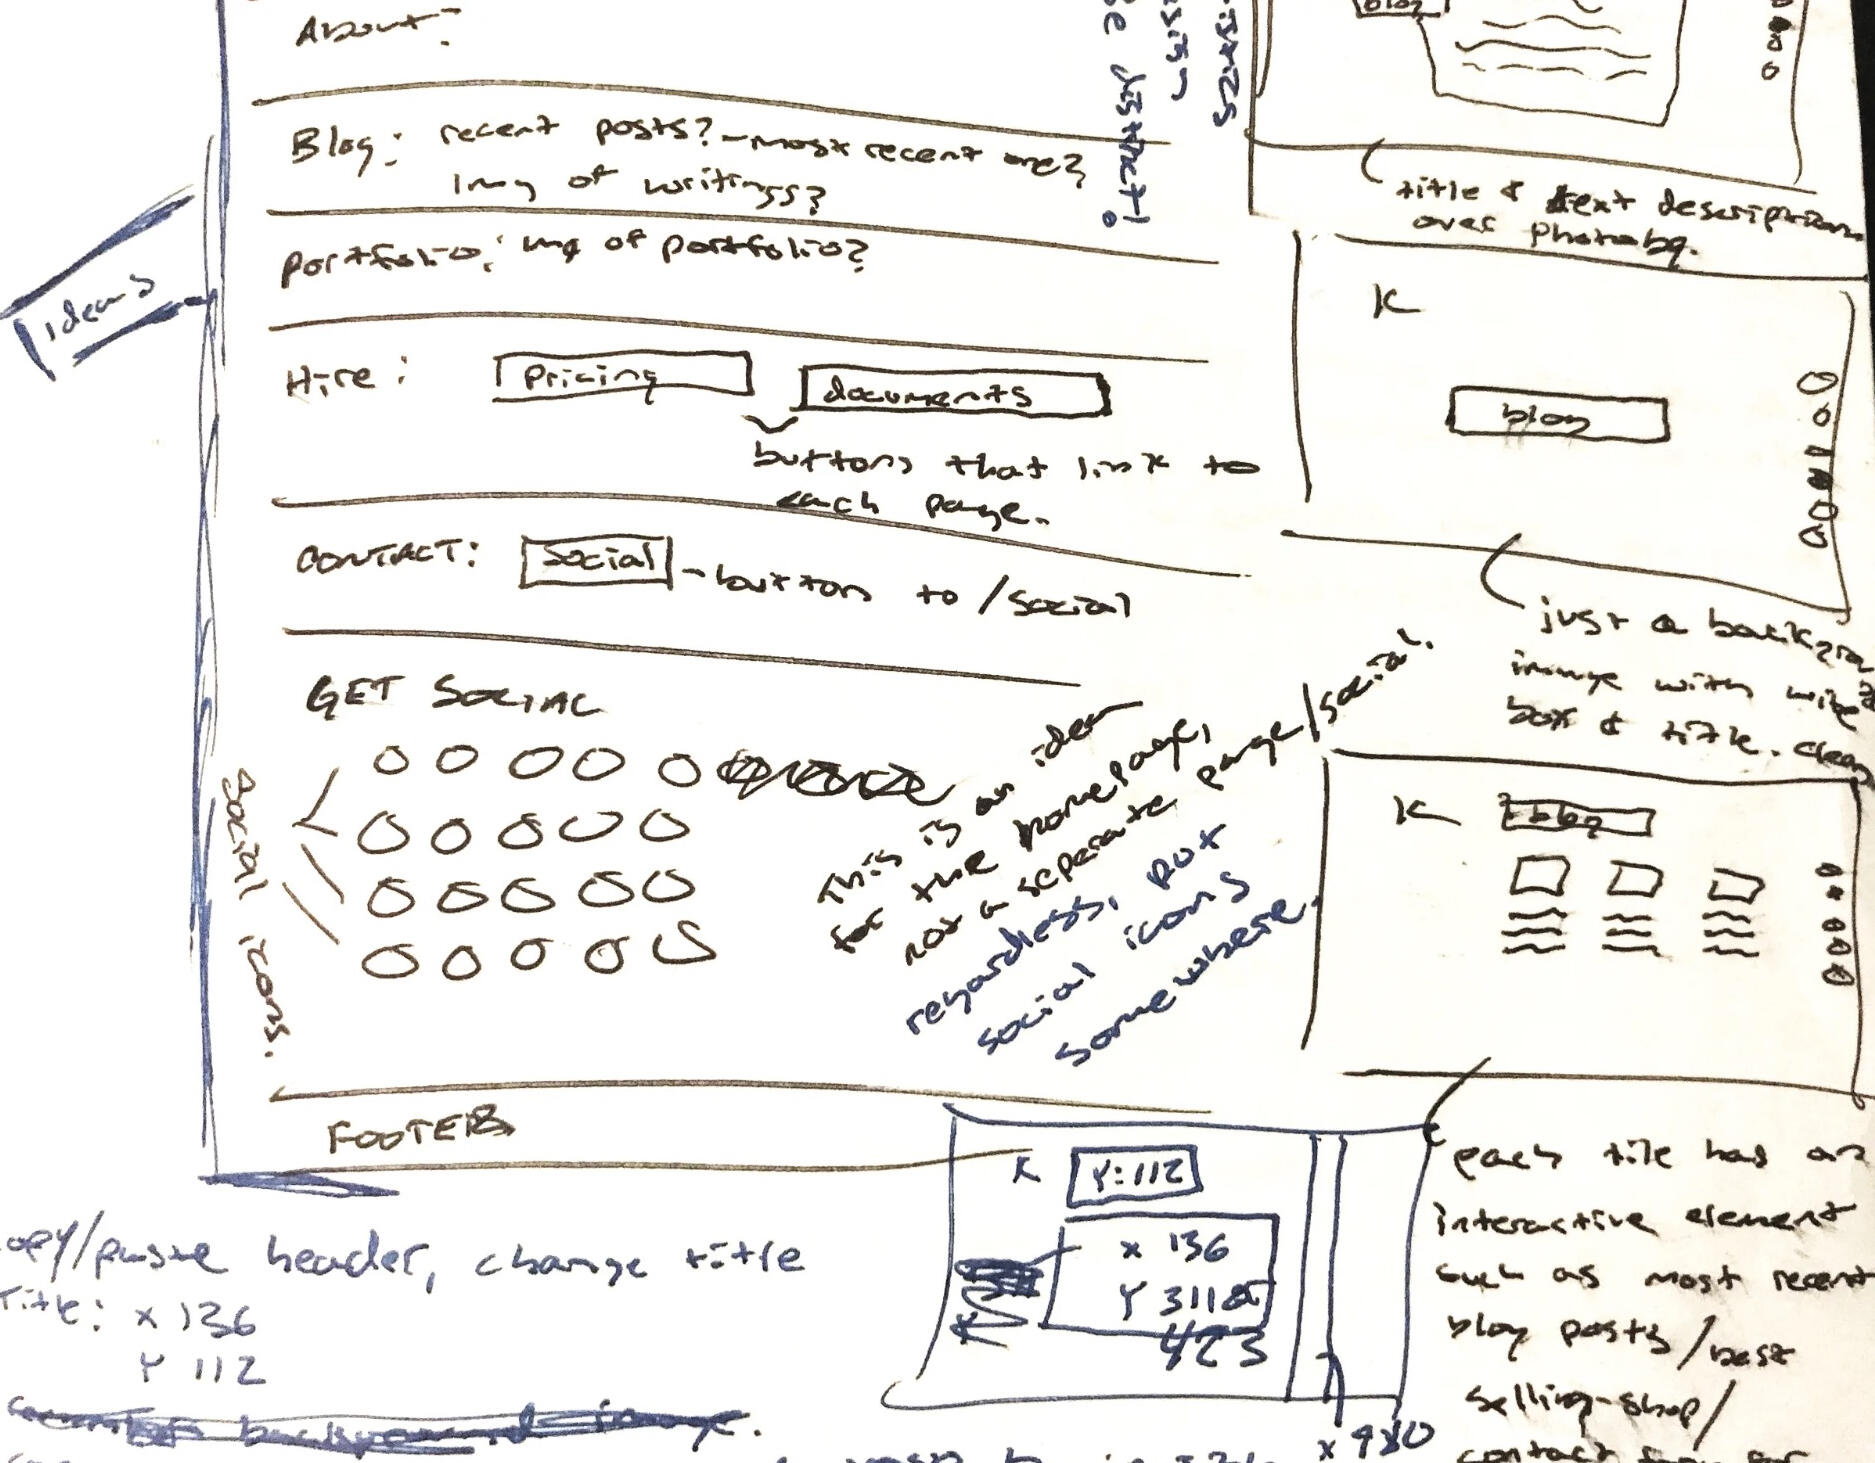 About:
Blog: recent posts? - most recent one?
img of writings?
portfolio: img of portfolio?
Ideas
Hire: Pricing documents
buttons that link to
each page.
CONTACT: Social - button to /social
GET SOCIAL
social icons.
This is an idea
for the homepage,
not a separate page/social.
regardless, put
social icons
somewhere.
FOOTER
be distinct!
blog
title & text description
over photobg.
K
blog
just a
image with
box & title. clean
K blog
each tile has an
interactive element
such as most recent
blog posts/best
selling-shop/
contact
K Y:112
X 136
Y 311
423
opy/paste header, change title
Title: X 136
Y 112
background image.